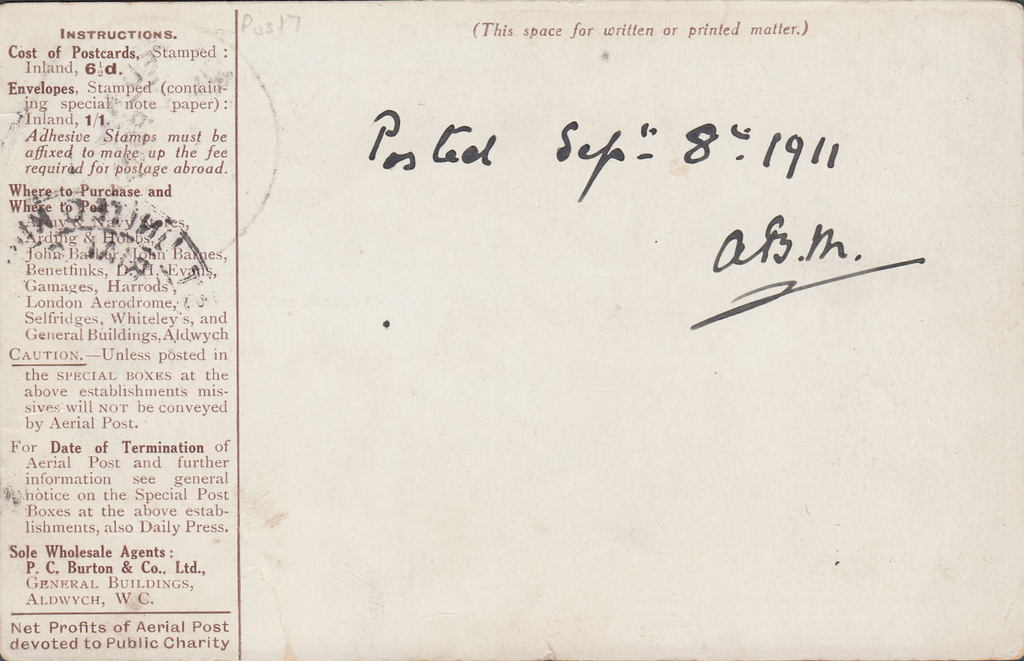 INSTRUCTIONS.
Cost of Postcards, Stamped :
Inland, 6½d.
Envelopes, Stamped (contain-
ing special note paper) :
Inland, 1/1.
Adhesive Stamps must be
affixed to make up the fee
required for postage abroad.
Where to Purchase and
Where to Post
Army & Navy Stores,
Arding & Hobbs,
John Barker, John Barnes,
Benetfinks, D. H. Evans,
Gamages, Harrods,
London Aerodrome,
Selfridges, Whiteley's, and
General Buildings, Aldwych
CAUTION.—Unless posted in
the SPECIAL BOXES at the
above establishments mis-
sives will NOT be conveyed
by Aerial Post.
For Date of Termination of
Aerial Post and further
information see general
notice on the Special Post
Boxes at the above estab-
lishments, also Daily Press.
Sole Wholesale Agents :
P. C. Burton & Co., Ltd.,
GENERAL BUILDINGS,
ALDWYCH, W C.
Net Profits of Aerial Post
devoted to Public Charity
Post 7
(This space for written or printed matter.)
Posted Sept 8th 1911
A.B.M.